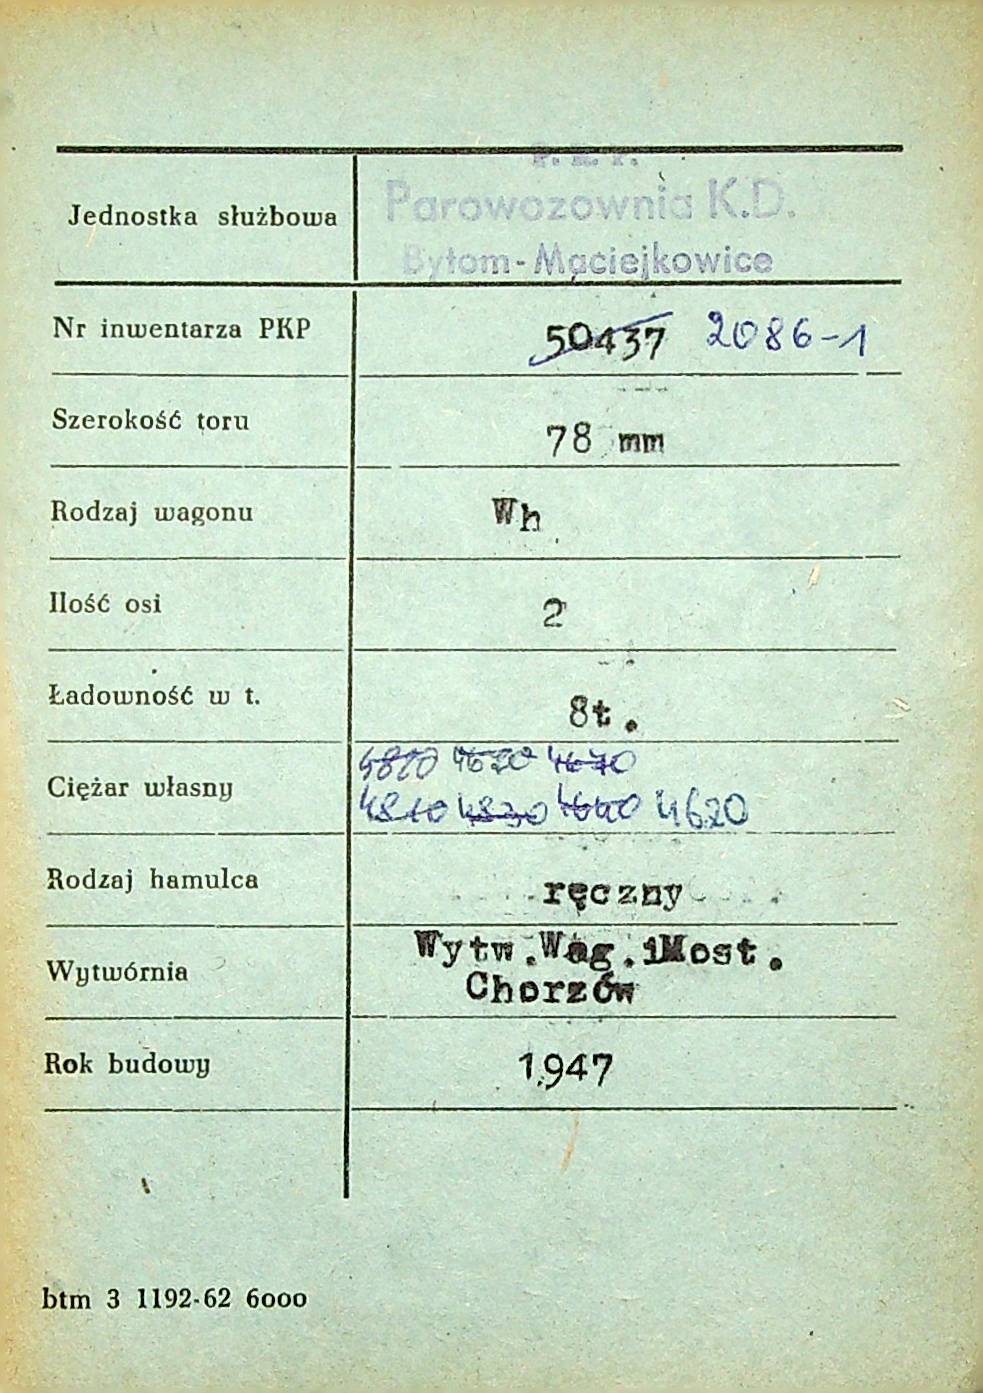 P. K. P.
Parowozownia K.D.
Jednostka służbowa
Bytom-Maciejkowice
Nr inwentarza PKP 50437 2086-1
Szerokość toru 78 mm
Rodzaj wagonu Wh
Ilość osi 2
Ładowność w t. 8t.
4810 4670 4670
Ciężar własny
4810 4830 4640 4620
Rodzaj hamulca ręczny
Wytw.Wag.iMost.
Wytwórnia
Chorzów
Rok budowy 1947
btm 3 1192-62 6000